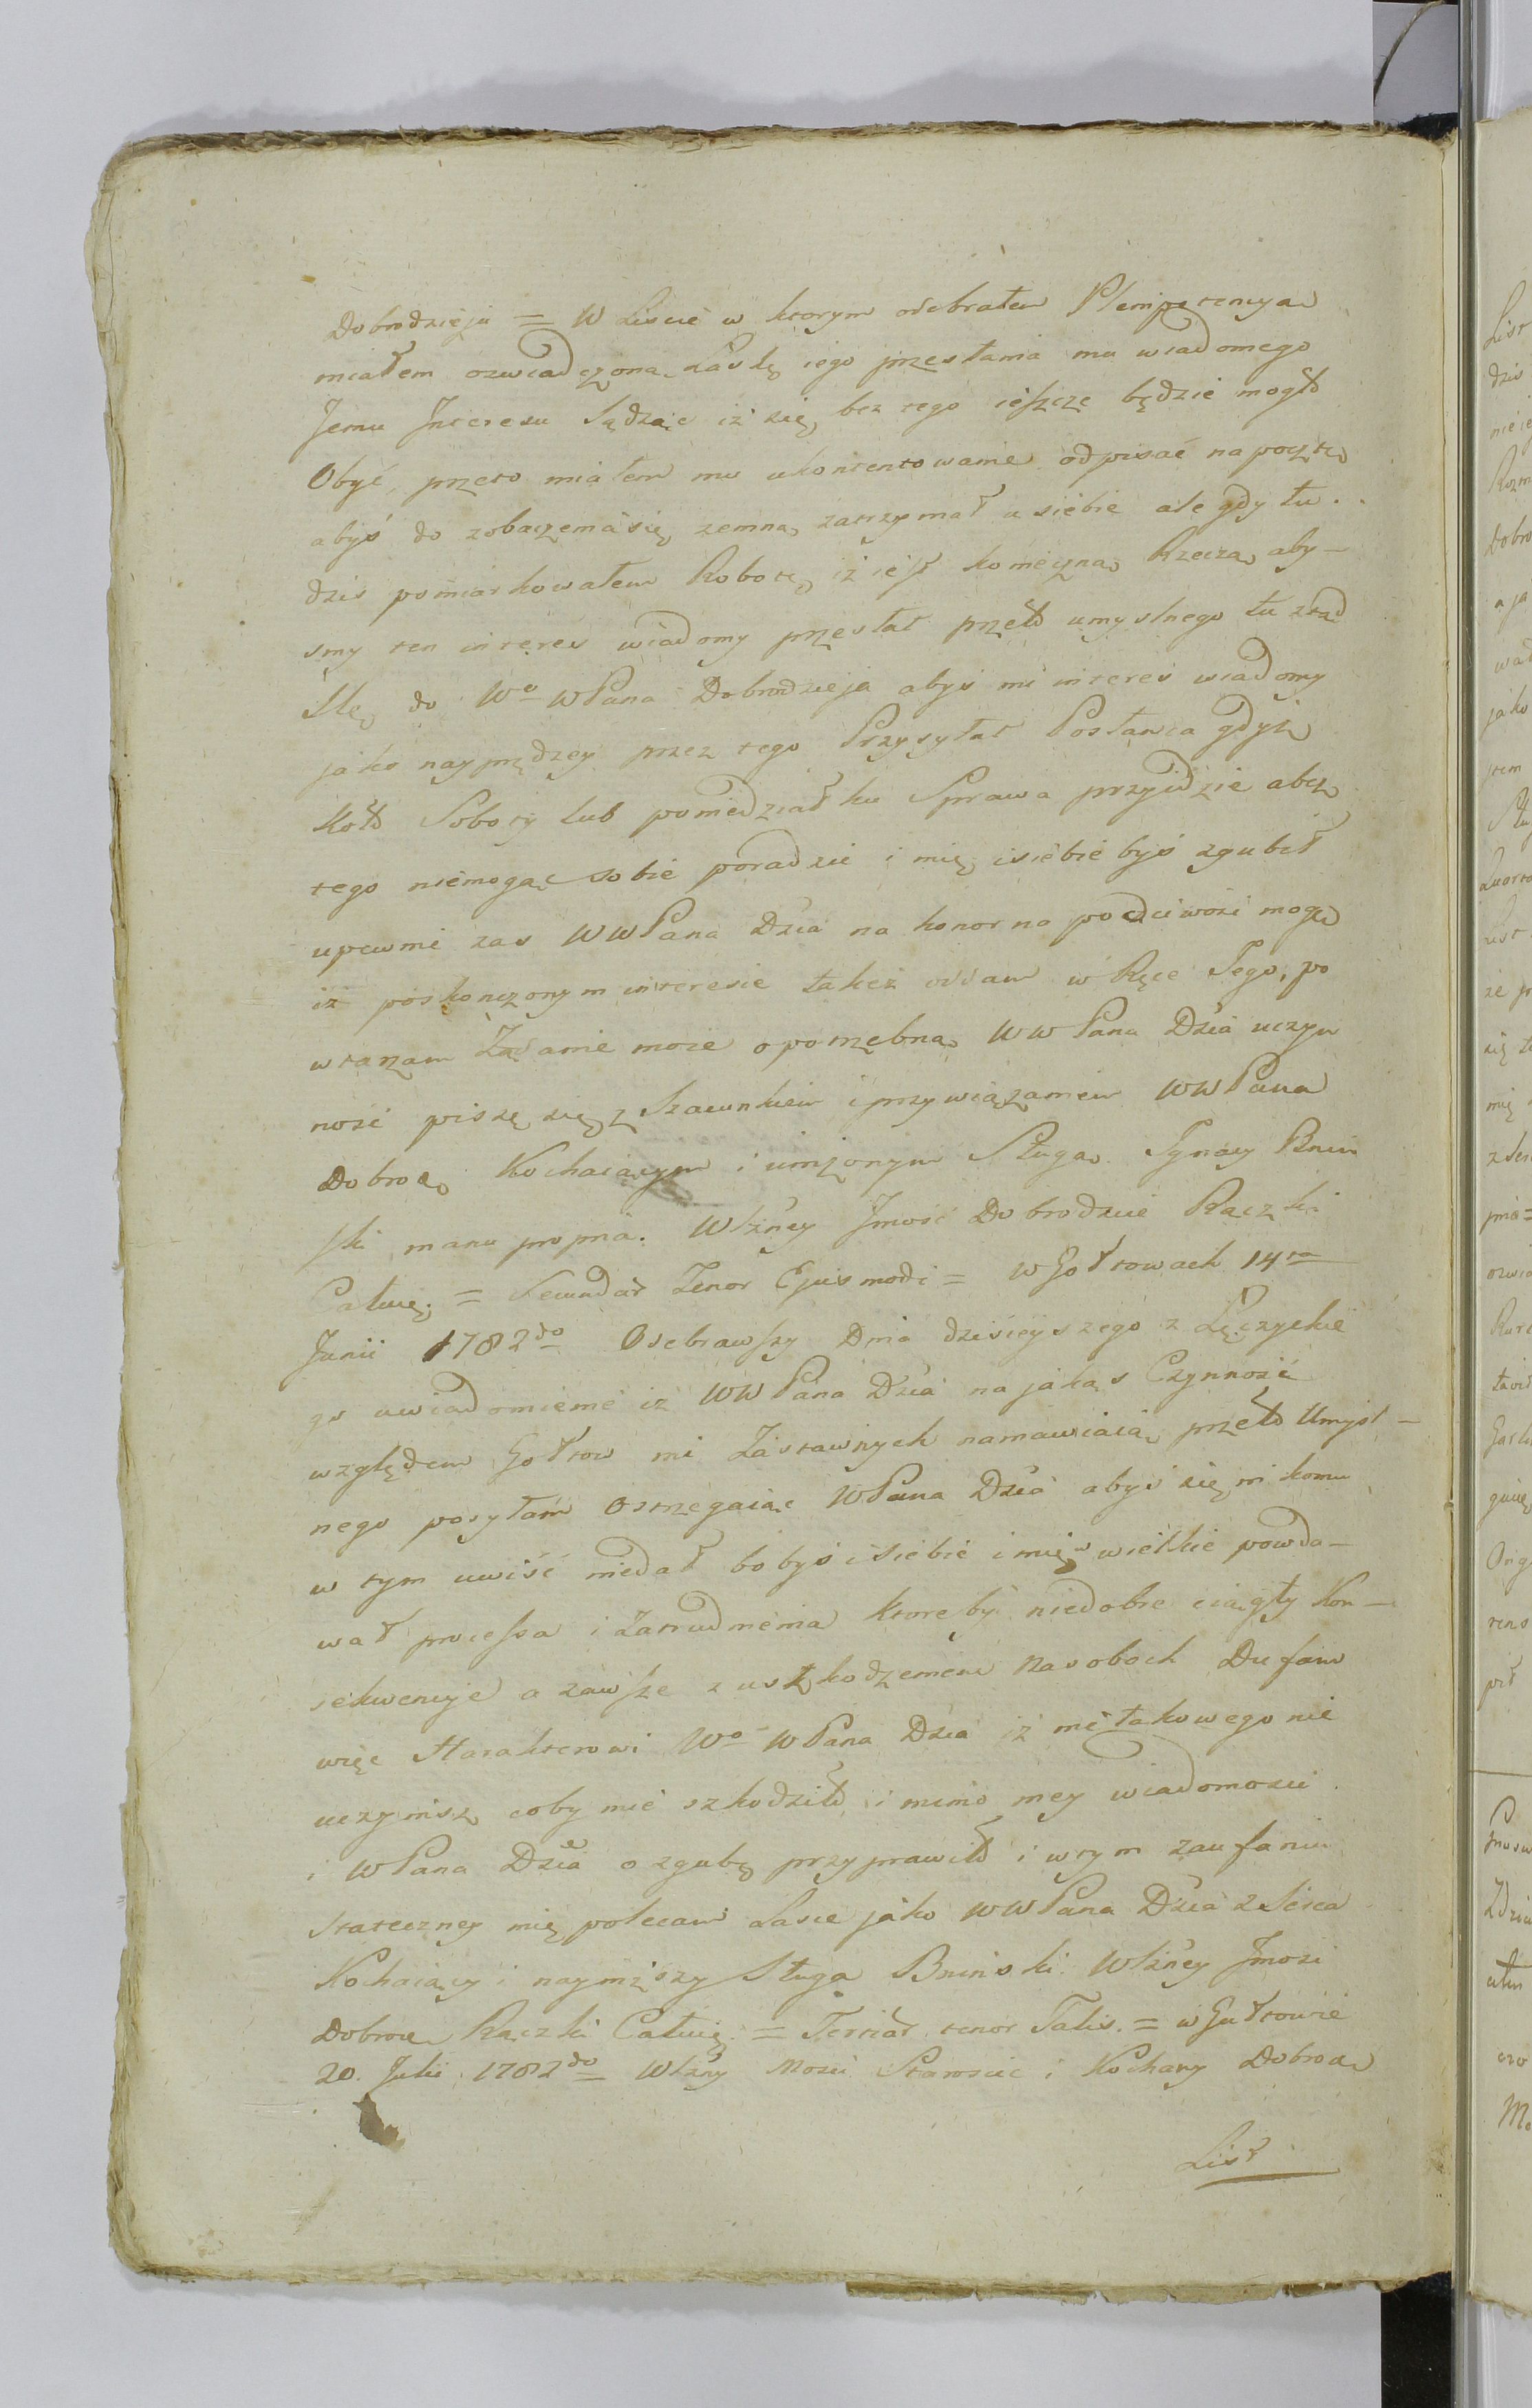 Dobrodzieju = W Liscie w ktorym odebrałem Plenipotencya
miałem oswiadczoną Łaskę iego przesłania mu wiadomego
Jemu Interesu Sądząc iż się bez tego ieszcze będzie mogło
Obyć, przeto miałem mu ukontentowanie odpisać na pocztę
abyś do zobaczenia się zemną zatrzymał u siebie ale gdy tu
dzis pomiarkowałem Robotę iż iest konieczną Rzeczą aby-
smy ten interes wiadomy przesłał przeto umyslnego tu ztąd
Slę do Wo WPana Dobrodzieja abyś mi interes wiadomy
jako nayprędzey przez tego Przysyłał Posłańca gdyż
koło Soboty lub poniedziałku Sprawa przyidzie abez
tego niemogąc sobie poradzić i mię i siebie byś zgubił
upewnić zas WWPana Dzia na honor na poczciwość mogę
iż poskonczonym interesie takeż oddam w Ręce Jego, po
wtarzam Żądanie moie o potrzebną WWPana Dzia uczyn
ność piszę się z Szacunkiem i przywiązaniem WWPana
Dobrod. Kochaiącym i uniżonym Sługą. Ignacy Bnin
ski manu propria. WJźney Jmość Dobrodzice Rączki
Całuię. = Secundae Tenor Ejusmodi = w Gołtowach 14ta
Junii 1782do Odebrawszy Dnia dzisieyszego z Łęczyckie
go uwiadomienie iż WWPana Dzia na jakąs Czynność
względem Gołtow mi Zastawnych namawiaią przeto Umysl-
nego posyłam Ostrzegaiąc WPana Dzia abyś się nikomu
w tym uwiść niedał bobyś i siebie i mię w wielkie powda-
wał processa i Zatrudnienia ktoreby niedobre ciągły Kon-
sekwencye a zawsze z uszkodzeniem Nas oboch Dufam
więc Harakterowi Wo WPana Dzia iż nic takowego nie
uczynisz coby mie szkodziło i mimo mey wiadomosci
i WPana Dzia o zgubę przyprawiło i w tym zaufaniu
stateczney mię polecam Łasce jako WWPana Dzia z Serca
Kochaiący i nayniższy Sługa Bninski WJźney Jmosci
Dobrodce Rączki Całuię = Tertiae tenor Talis. = w Gułtowie
20. Julii 1782do WJźny Mosci Staroscic i Kochany Dobrod.
List